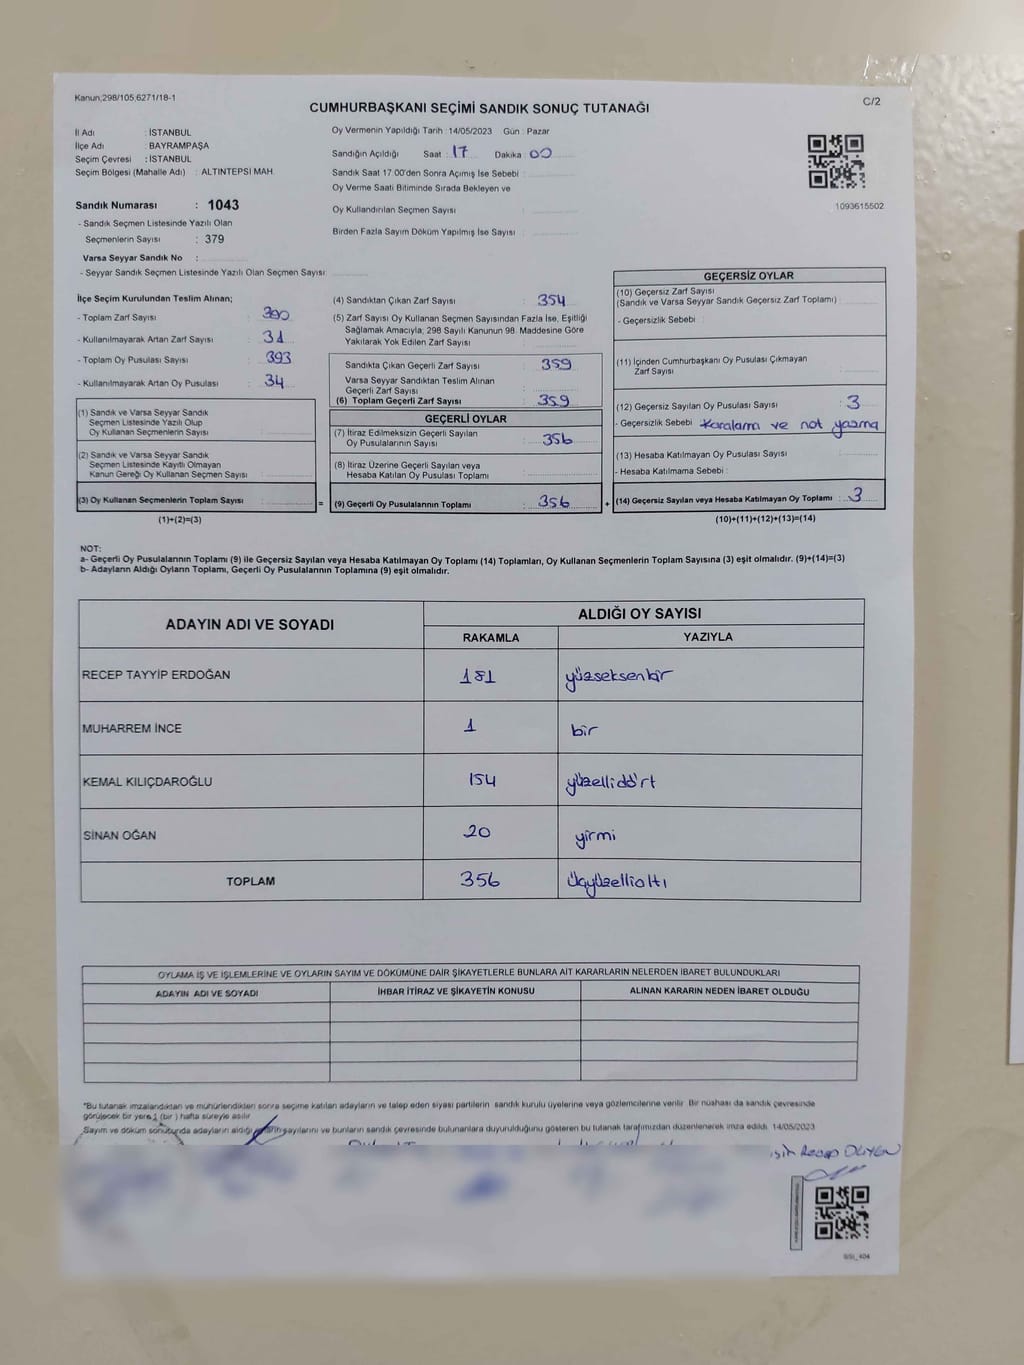 Kanun;298/105,6271/18-1
CUMHURBAŞKANI SEÇİMİ SANDIK SONUÇ TUTANAĞI
C/2
İl Adı : İSTANBUL
İlçe Adı : BAYRAMPAŞA
Seçim Çevresi : İSTANBUL
Seçim Bölgesi (Mahalle Adı) : ALTINTEPSİ MAH.
Oy Vermenin Yapıldığı Tarih : 14/05/2023 Gün : Pazar
Sandığın Açıldığı Saat : 17 Dakika : 00
Sandık Saat 17.00'den Sonra Açımış İse Sebebi :
Oy Verme Saati Bitiminde Sırada Bekleyen ve
Oy Kullandırılan Seçmen Sayısı :
Birden Fazla Sayım Döküm Yapılmış İse Sayısı :
1093615502
Sandık Numarası : 1043
- Sandık Seçmen Listesinde Yazılı Olan
Seçmenlerin Sayısı : 379
Varsa Seyyar Sandık No :
- Seyyar Sandık Seçmen Listesinde Yazılı Olan Seçmen Sayısı:
İlçe Seçim Kurulundan Teslim Alınan;
- Toplam Zarf Sayısı :
- Kullanılmayarak Artan Zarf Sayısı : 31
- Toplam Oy Pusulası Sayısı : 393
- Kullanılmayarak Artan Oy Pusulası : 34
(1) Sandık ve Varsa Seyyar Sandık
Seçmen Listesinde Yazılı Olup
Oy Kullanan Seçmenlerin Sayısı :
(2) Sandık ve Varsa Seyyar Sandık
Seçmen Listesinde Kayıtlı Olmayan
Kanun Gereği Oy Kullanan Seçmen Sayısı :
(3) Oy Kullanan Seçmenlerin Toplam Sayısı :
(1)+(2)=(3)
(4) Sandıktan Çıkan Zarf Sayısı : 354
(5) Zarf Sayısı Oy Kullanan Seçmen Sayısından Fazla İse, Eşitliği
Sağlamak Amacıyla; 298 Sayılı Kanunun 98. Maddesine Göre
Yakılarak Yok Edilen Zarf Sayısı :
Sandıkta Çıkan Geçerli Zarf Sayısı : 359
Varsa Seyyar Sandıktan Teslim Alınan
Geçerli Zarf Sayısı :
(6) Toplam Geçerli Zarf Sayısı : 359
GEÇERLİ OYLAR
(7) İtiraz Edilmeksizin Geçerli Sayılan
Oy Pusulalarının Sayısı : 356
(8) İtiraz Üzerine Geçerli Sayılan veya
Hesaba Katılan Oy Pusulası Toplamı :
= (9) Geçerli Oy Pusulalarının Toplamı : 356 +
GEÇERSİZ OYLAR
(10) Geçersiz Zarf Sayısı
(Sandık ve Varsa Seyyar Sandık Geçersiz Zarf Toplamı) :
- Geçersizlik Sebebi :
(11) İçinden Cumhurbaşkanı Oy Pusulası Çıkmayan
Zarf Sayısı :
(12) Geçersiz Sayılan Oy Pusulası Sayısı : 3
- Geçersizlik Sebebi : Karalama ve not yazma
(13) Hesaba Katılmayan Oy Pusulası Sayısı :
- Hesaba Katılmama Sebebi :
(14) Geçersiz Sayılan veya Hesaba Katılmayan Oy Toplamı : 3
(10)+(11)+(12)+(13)=(14)
NOT:
a- Geçerli Oy Pusulalarının Toplamı (9) ile Geçersiz Sayılan veya Hesaba Katılmayan Oy Toplamı (14) Toplamları, Oy Kullanan Seçmenlerin Toplam Sayısına (3) eşit olmalıdır. (9)+(14)=(3)
b- Adayların Aldığı Oyların Toplamı, Geçerli Oy Pusulalarının Toplamına (9) eşit olmalıdır.
ADAYIN ADI VE SOYADI
ALDIĞI OY SAYISI
RAKAMLA YAZIYLA
RECEP TAYYİP ERDOĞAN 181 yüzseksenbir
MUHARREM İNCE 1 bir
KEMAL KILIÇDAROĞLU 154 yüzellidört
SİNAN OĞAN 20 yirmi
TOPLAM 356 üçyüzellialtı
OYLAMA İŞ VE İŞLEMLERİNE VE OYLARIN SAYIM VE DÖKÜMÜNE DAİR ŞİKAYETLERLE BUNLARA AİT KARARLARIN NELERDEN İBARET BULUNDUKLARI
ADAYIN ADI VE SOYADI İHBAR İTİRAZ VE ŞİKAYETİN KONUSU ALINAN KARARIN NEDEN İBARET OLDUĞU
*Bu tutanak imzalandıktan ve mühürlendikten sonra seçime katılan adayların ve talep eden siyasi partilerin sandık kurulu üyelerine veya gözlemcilerine verilir. Bir nüshası da sandık çevresinde
görülecek bir yere 1 (bir ) hafta süreyle asılır.
Sayım ve döküm sonucunda adayların aldığı sayılarını ve bunların sandık çevresinde bulunanlara duyurulduğunu gösteren bu tutanak tarafımızdan düzenlenerek imza edildi. 14/05/2023
Recep